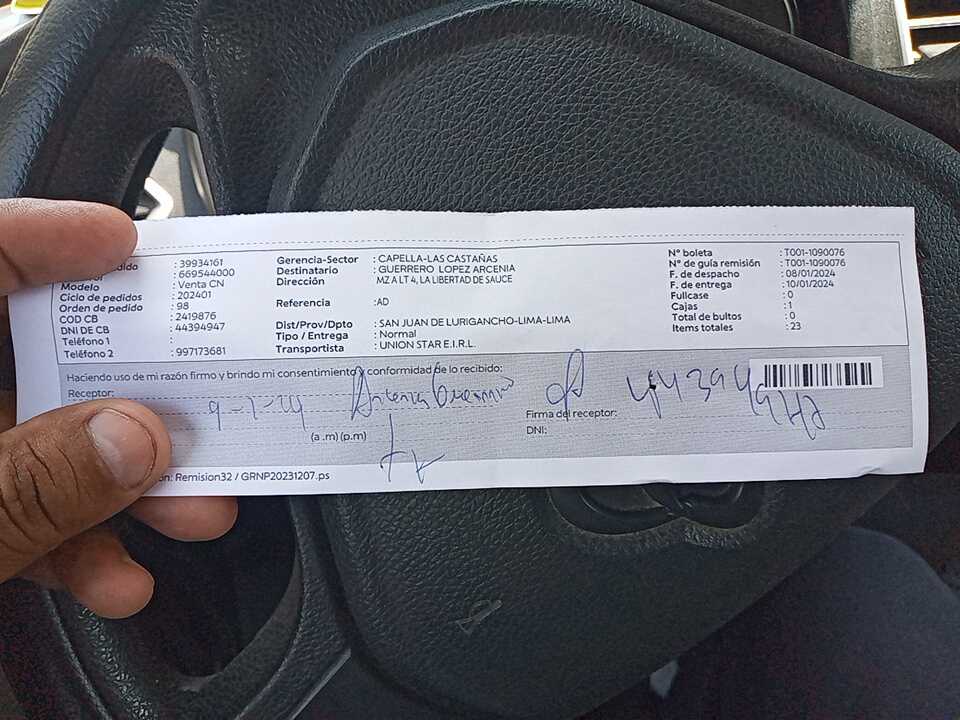 dido : 39934161
: 669544000
Modelo : Venta CN
Ciclo de pedidos : 202401
Orden de pedido : 98
COD CB : 2419876
DNI DE CB : 44394947
Teléfono 1 :
Teléfono 2 : 997173681
Gerencia-Sector : CAPELLA-LAS CASTAÑAS
Destinatario : GUERRERO LOPEZ ARCENIA
Dirección MZ A LT 4, LA LIBERTAD DE SAUCE
Referencia :AD
Dist/Prov/Dpto : SAN JUAN DE LURIGANCHO-LIMA-LIMA
Tipo / Entrega : Normal
Transportista : UNION STAR E.I.R.L.
N° boleta : T001-1090076
N° de guía remisión : T001-1090076
F. de despacho : 08/01/2024
F. de entrega : 10/01/2024
Fullcase : 0
Cajas : 1
Total de bultos : 0
Items totales : 23
Haciendo uso de mi razón firmo y brindo mi consentimiento y conformidad de lo recibido:
Receptor:
9-1-24 Arcenia Guerrero
(a .m) (p.m)
Firma del receptor:
DNI:
ón: Remision32 / GRNP20231207.ps